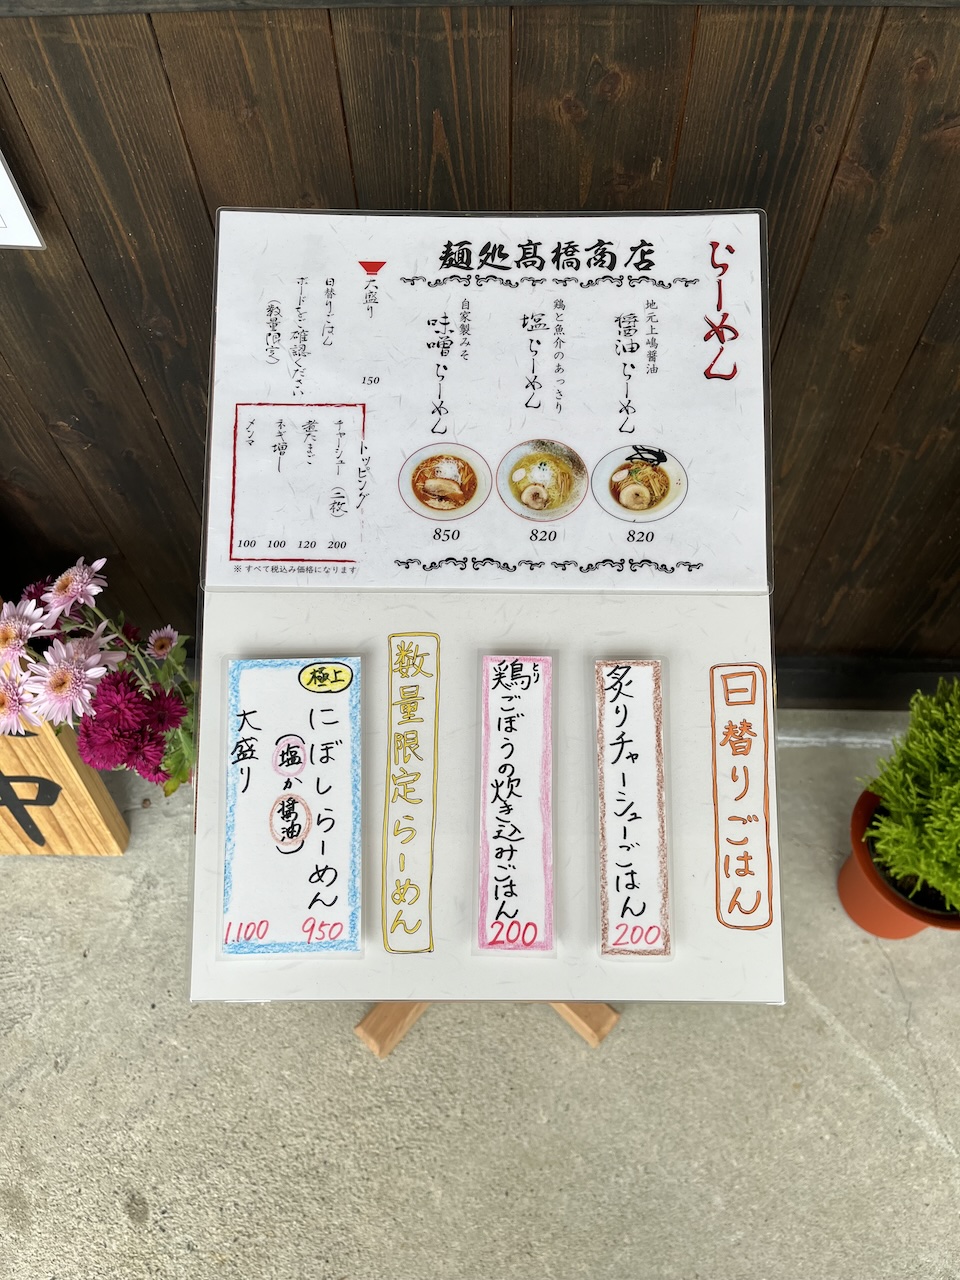 らーめん
麺処髙橋商店
地元上嶋醤油
醤油らーめん
820
鶏と魚介のあっさり
塩らーめん
820
自家製みそ
味噌らーめん
850
大盛り
150
日替りごはん
ボードをご確認ください
(数量限定)
トッピング
チャーシュー(二枚)
200
煮たまご
120
ネギ増し
100
メンマ
100
※すべて税込み価格になります
日替りごはん
炙りチャーシューごはん
200
鶏ごぼうの炊き込みごはん
とり
200
数量限定らーめん
極上
にぼしらーめん
950
(塩か醤油)
大盛り
1,100